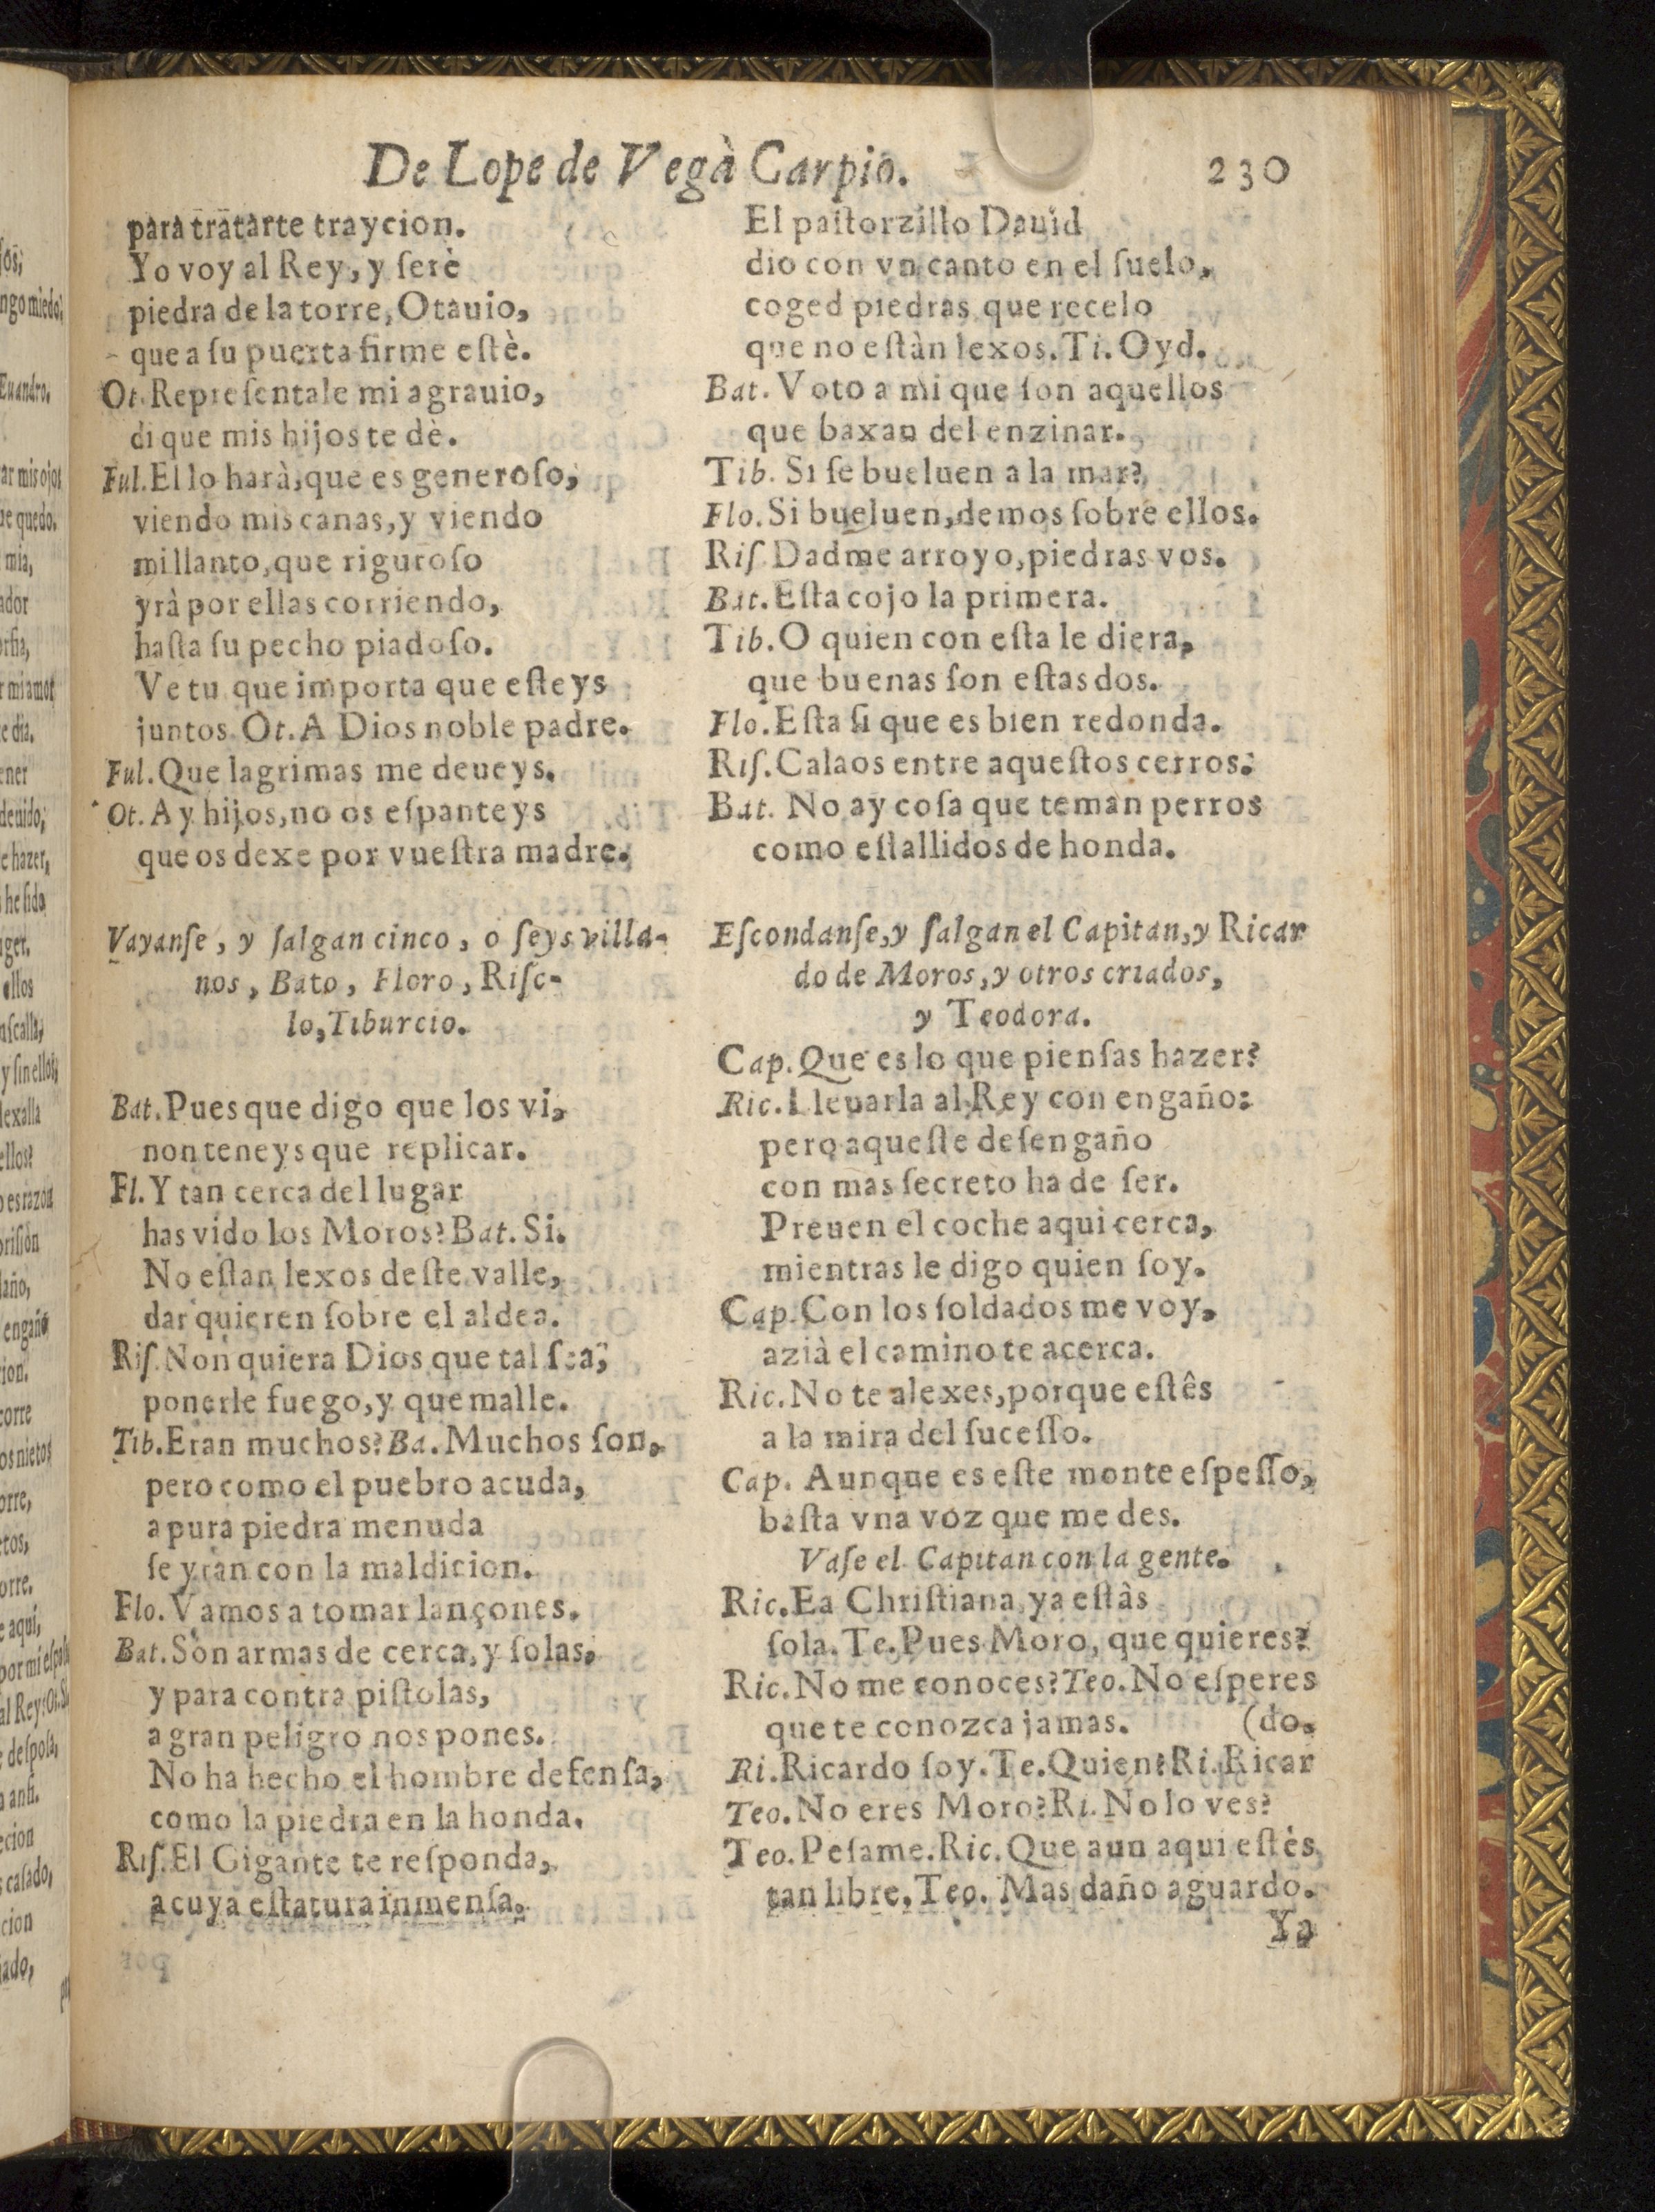 De Lope de Vegà Carpio. 230
para tratarte traycion.
Yo voy al Rey, y ſerè
piedra de la torre, Otauio,
que a ſu puerta firme eſtè.
Ot. Repreſentale mi agrauio,
di que mis hijos te dè.
Ful. El lo harà, que es generoſo,
viendo mis canas, y viendo
mi llanto, que riguroſo
yrà por ellas corriendo,
haſta ſu pecho piadoſo.
Ve tu que importa que eſteys
juntos. Ot. A Dios noble padre.
Ful. Que lagrimas me deueys.
Ot. Ay hijos, no os eſpanteys
que os dexe por vueſtra madre.
Vayanſe, y ſalgan cinco, o ſeys villa-
nos, Bato, Floro, Riſe-
lo, Tiburcio.
Bat. Pues que digo que los vi,
non teneys que replicar.
Fl. Y tan cerca del lugar
has vido los Moros? Bat. Si.
No eſtan lexos deſte valle,
dar quieren ſobre el aldea.
Riſ. Non quiera Dios que tal ſea,
ponerle fuego, y que malle.
Tib. Eran muchos? Ba. Muchos ſon,
pero como el puebro acuda,
a pura piedra menuda
ſe yràn con la maldicion.
Flo. Vamos a tomar lançones.
Bat. Son armas de cerca, y ſolas,
y para contra piſtolas,
a gran peligro nos pones.
No ha hecho el hombre defenſa,
como la piedra en la honda.
Riſ. El Gigante te reſponda,
a cuya eſtatura inmenſa.
El paſtorzillo Dauid
dio con vn canto en el ſuelo,
coged piedras que recelo
que no eſtàn lexos. Ti. Oyd.
Bat. Voto a mi que ſon aquellos
que baxan del enzinar.
Tib. Si ſe bueluen a la mar?
Flo. Si bueluen, demos ſobre ellos.
Riſ. Dadme arroyo, piedras vos.
Bat. Eſta cojo la primera.
Tib. O quien con eſta le diera,
que buenas ſon eſtas dos.
Flo. Eſta ſi que es bien redonda.
Riſ. Calaos entre aqueſtos cerros.
Bat. No ay coſa que teman perros
como eſtallidos de honda.
Eſcondanſe, y ſalgan el Capitan, y Ricar
do de Moros, y otros criados,
y Teodora.
Cap. Que es lo que pienſas hazer?
Ric. Lleuarla al Rey con engaño:
pero aqueſte deſengaño
con mas ſecreto ha de ſer.
Preuen el coche aqui cerca,
mientras le digo quien ſoy.
Cap. Con los ſoldados me voy,
azià el camino te acerca.
Ric. No te alexes, porque eſtês
a la mira del ſuceſſo.
Cap. Aunque es eſte monte eſpeſſo,
baſta vna voz que me des.
Vaſe el Capitan con la gente.
Ric. Ea Chriſtiana, ya eſtàs
ſola. Te. Pues Moro, que quieres?
Ric. No me conoces? Teo. No eſperes
que te conozca jamas. (do.
Ri. Ricardo ſoy. Te. Quien? Ri. Ricar
Teo. No eres Moro? Ri. No lo ves?
Teo. Peſame. Ric. Que aun aqui eſtès
tan libre. Teo. Mas daño aguardo.
Ya